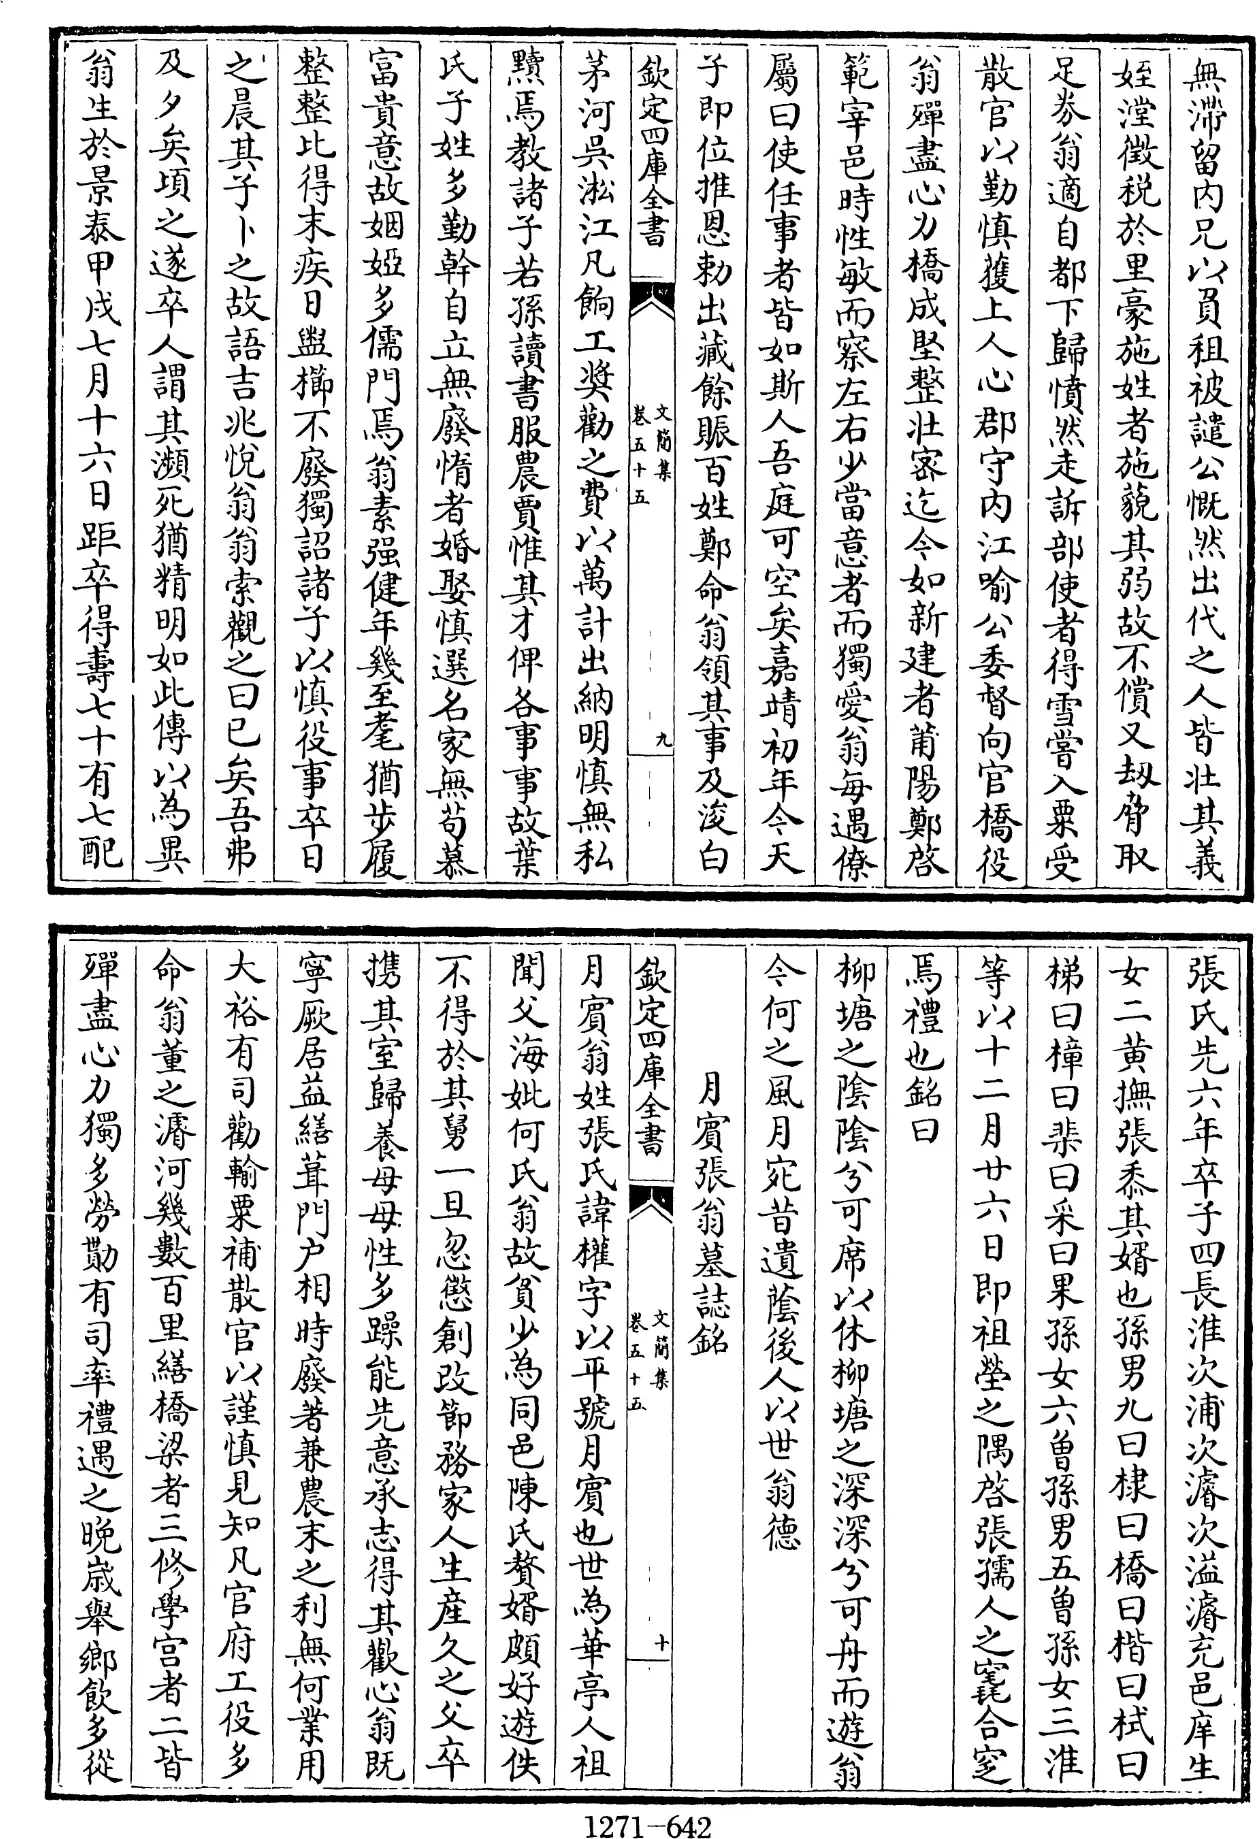 無滯留内兄以負租被譴公慨然出代之人皆壯其義
姪瀅徴税於里豪施姓者施藐其弱故不償又劫脅取
足券翁適自都下歸憤然走訴部使者得雪嘗入粟受
散官以勤慎獲上人心郡守内江喻公委督向官橋役
翁殫盡心力橋成堅整壯宻迄今如新建者莆陽鄭啓
範宰邑時性敏而察左右少當意者而獨愛翁每遇僚
屬曰使任事者皆如斯人吾庭可空矣嘉靖初年今天
子即位推恩勅出藏餘賑百姓鄭命翁領其事及浚白
欽定四庫全書
文簡集
卷五十五
九
茅河吳淞江凡餉工奬勸之費以萬計出納明慎無私
黷焉教諸子若孫讀書服農賈惟其才俾各事事故葉
氏子姓多勤幹自立無廢惰者婚娶慎選名家無苟慕
富貴意故姻婭多儒門焉翁素强健年幾至耄猶步履
整整比得末疾日盥櫛不廢獨詔諸子以慎役事卒日
之晨其子卜之故語吉兆悦翁翁索觀之曰已矣吾弗
及夕矣頃之遂卒人謂其瀕死猶精明如此傳以為異
翁生於景泰甲戌七月十六日距卒得壽七十有七配
張氏先六年卒子四長淮次浦次濬次溢濬充邑庠生
女二黄撫張黍其婿也孫男九曰棣曰橋曰楷曰栻曰
梯曰樟曰棐曰采曰果孫女六曽孫男五曽孫女三淮
等以十二月廿六日即祖塋之隅啓張孺人之窀合窆
焉禮也銘曰
柳塘之陰陰兮可席以休柳塘之深深兮可舟而遊翁
今何之風月宛昔遺蔭後人以世翁德
月賔張翁墓誌銘
欽定四庫全書
文簡集
卷五十五
十
月賔翁姓張氏諱權字以平號月賔也世為華亭人祖
聞父海妣何氏翁故貧少為同邑陳氏贅婿頗好遊佚
不得於其舅一旦忽懲創改節務家人生産久之父卒
携其室歸養母母性多躁能先意承志得其歡心翁既
寧厥居益繕葺門户相時廢著兼農末之利無何業用
大裕有司勸輸粟補散官以謹慎見知凡官府工役多
命翁董之濬河幾數百里繕橋梁者三修學宫者二皆
殫盡心力獨多勞勩有司率禮遇之晩歲舉鄉飲多從
1271-642